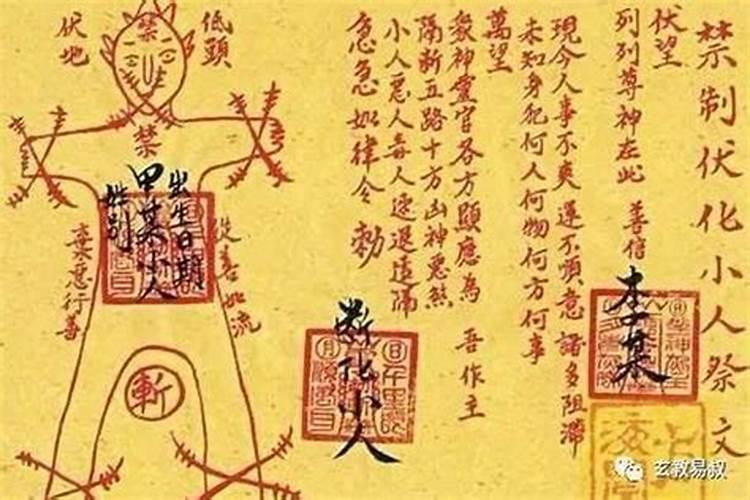 禁制伏化小人祭文
伏望
列列尊神在此 善信 李某
現今人事不爽運不順意諸多阻滯
未知身犯何人何物何方何事
萬望
眾神靈官各方顯應為 吾作主
隔斷五路十方凶神惡煞
小人惡人毒人速退遠隔
急急如律令 勅
断化小人
低頭
禁
伏地
禁
出生日期
甲某小人
姓别
從善如流
棄惡行善
斬
玄教易叔